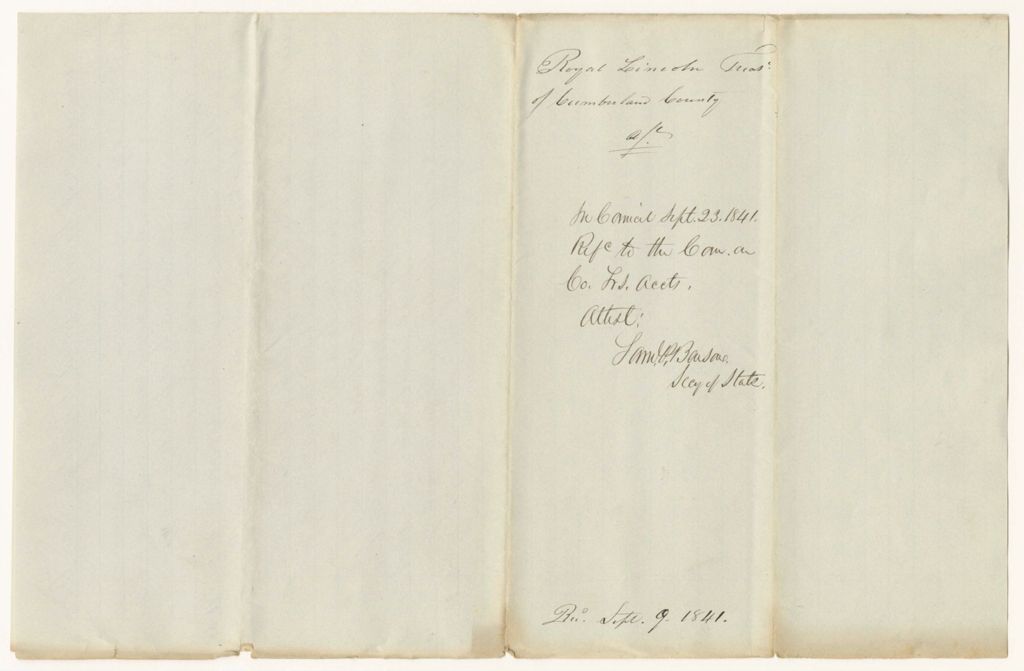 Royal Lincoln Treas.
of Cumberland County
a/c
In Council Sept. 23. 1841.
Refd to the Com. on
Co. Trs. Accts.
Attest:
Saml. P. Benson.
Secy of State.
Rec. Sept. 9. 1841.